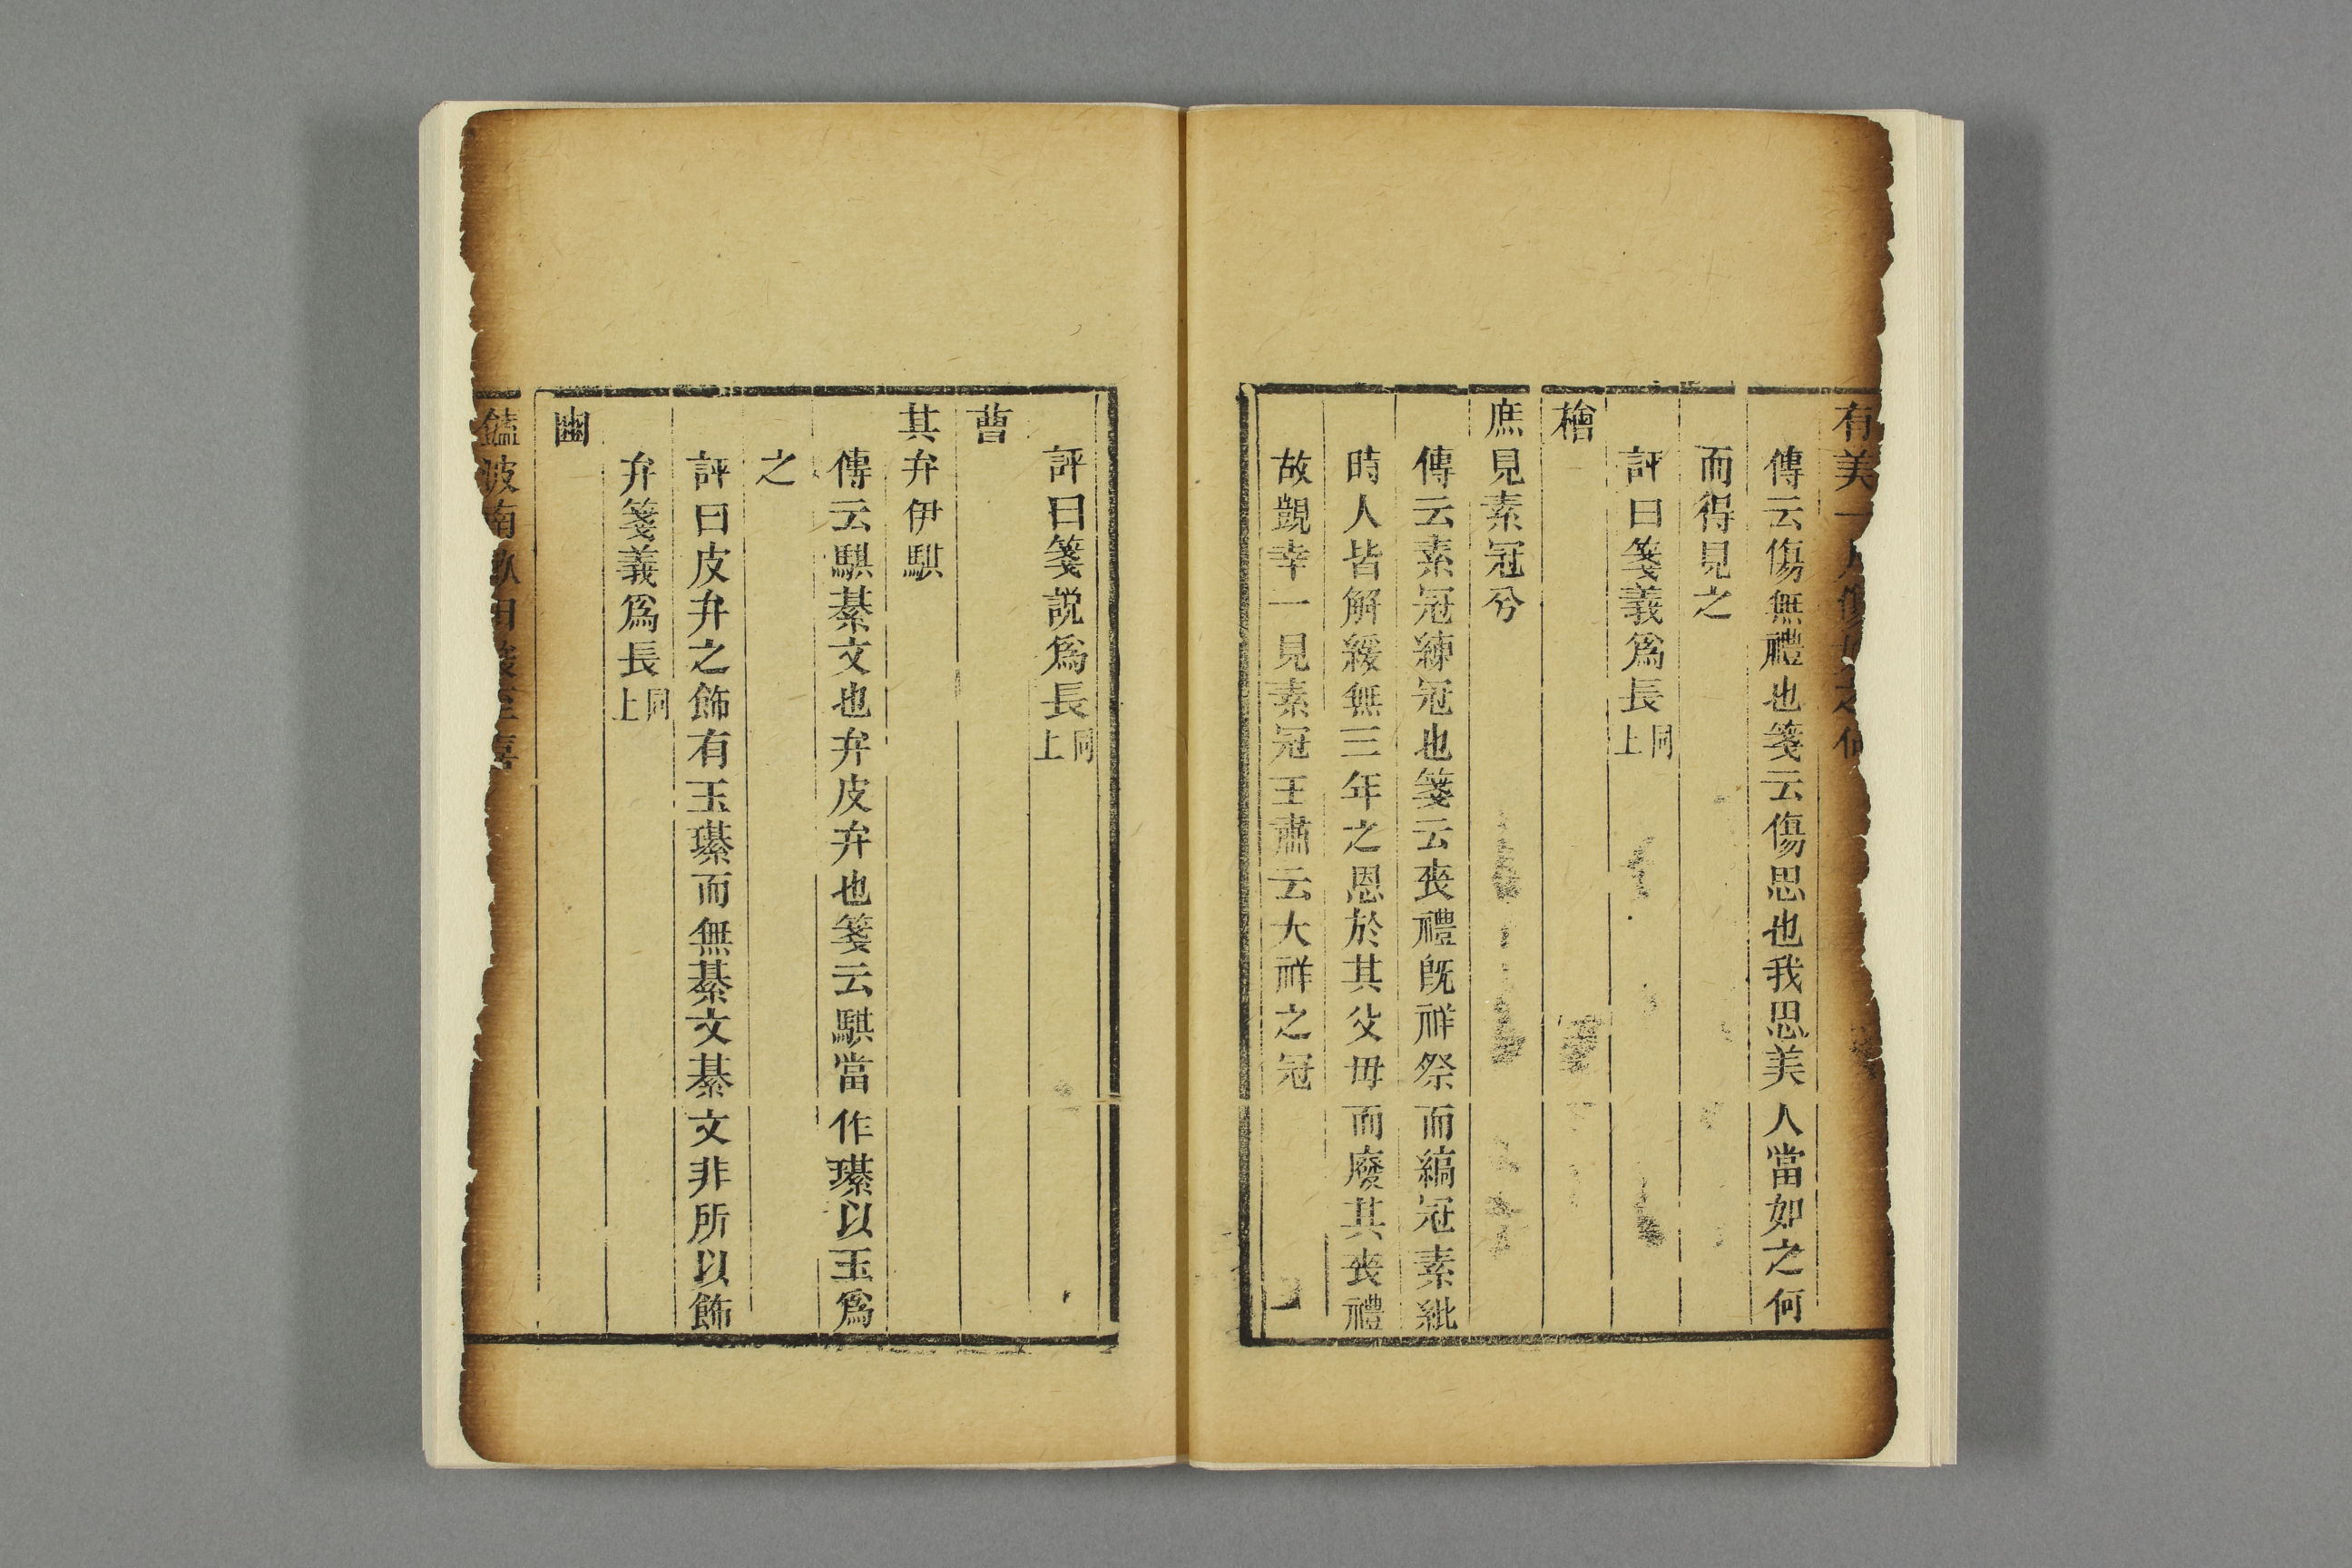 有美一人傷如之何
傳云傷無禮也箋云傷思也我思美人當如之何
而得見之
評曰箋義爲長同上
檜
庶見素冠兮
傳云素冠練冠也箋云喪禮旣祥祭而縞冠素紕
時人皆解緩無三年之恩於其父母而廢其喪禮
故覬幸一見素冠王肅云大祥之冠
評曰箋説爲長同上
曹
其弁伊騏
傳云騏綦文也弁皮弁也箋云騏當作璂以玉爲
之
評曰皮弁之飾有玉璂而無綦文綦文非所以飾
弁箋義爲長同上
豳
饁彼南畝田畯至喜